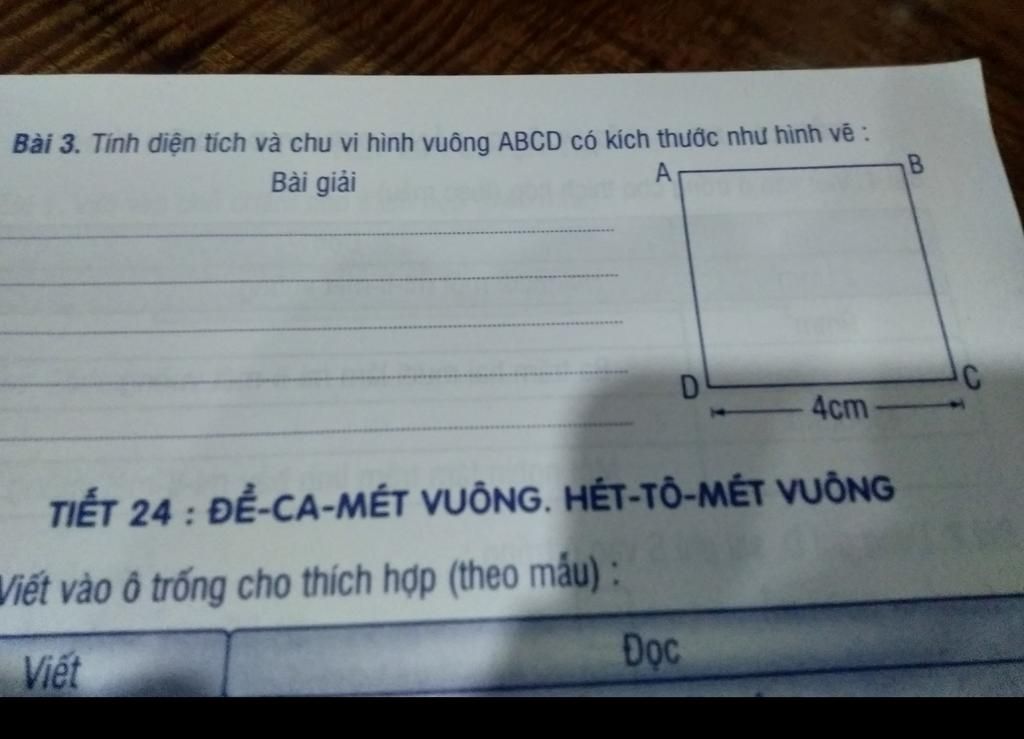 Bài 3. Tính diện tích và chu vi hình vuông ABCD có kích thước như hình vẽ :
Bài giải
A
B
D
C
4cm
TIẾT 24 : ĐỀ-CA-MÉT VUÔNG. HÉT-TÔ-MÉT VUÔNG
Viết vào ô trống cho thích hợp (theo mẫu) :
Viết
Đọc